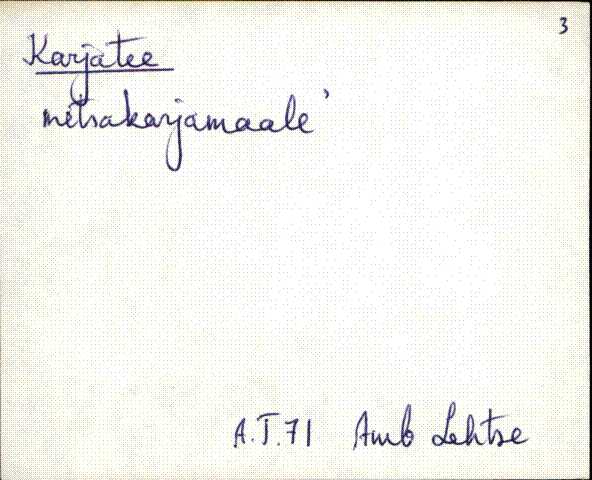 3
Karjatee
metsakarjamaale'
A.T.71 Amb Lehtse